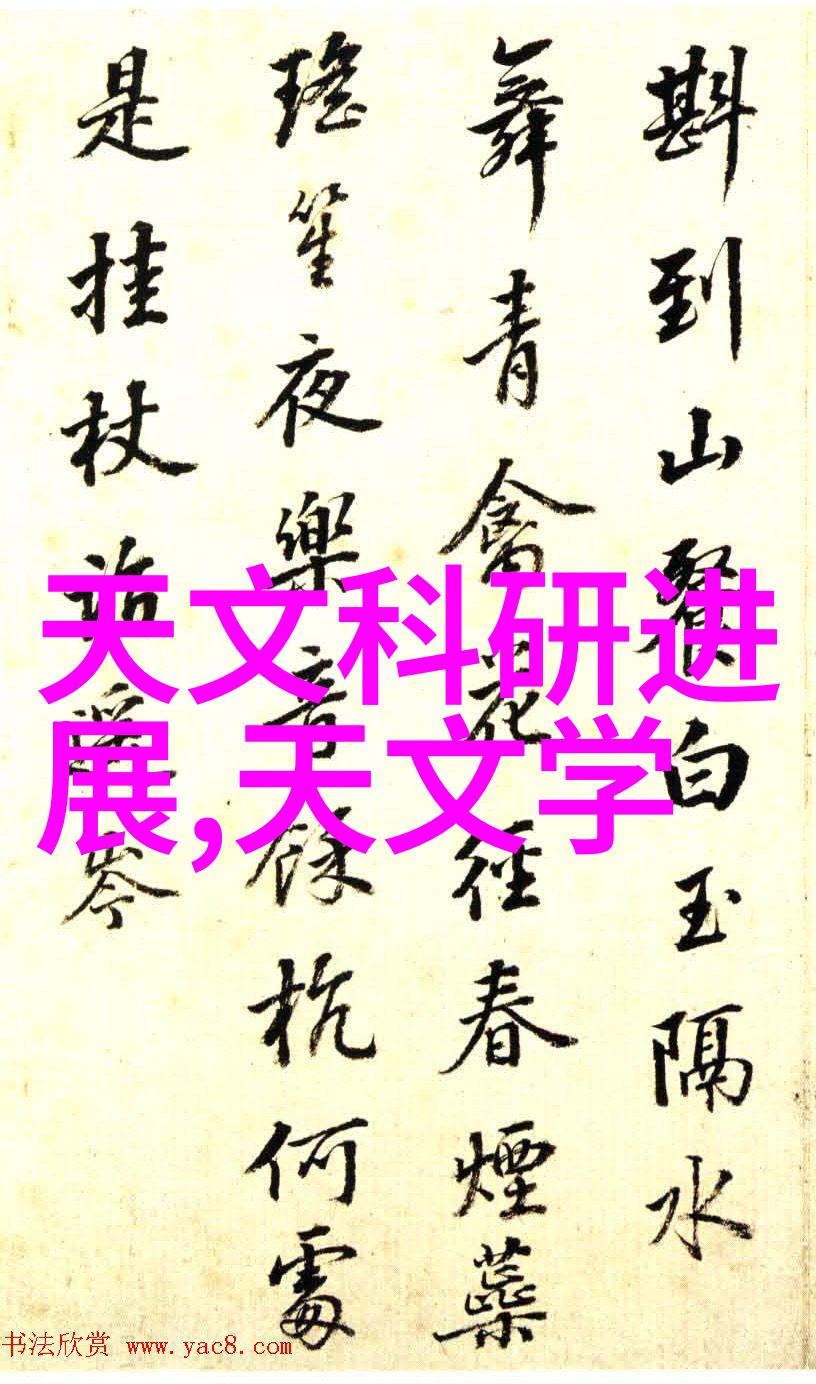 斟到山餐白玉隔水
舞青禽花徑春煙蘂
瑤笙夜樂餘杭何處
是挂杖詣岑
天文科研进
展,天文学
书法欣赏 www.yac8.com